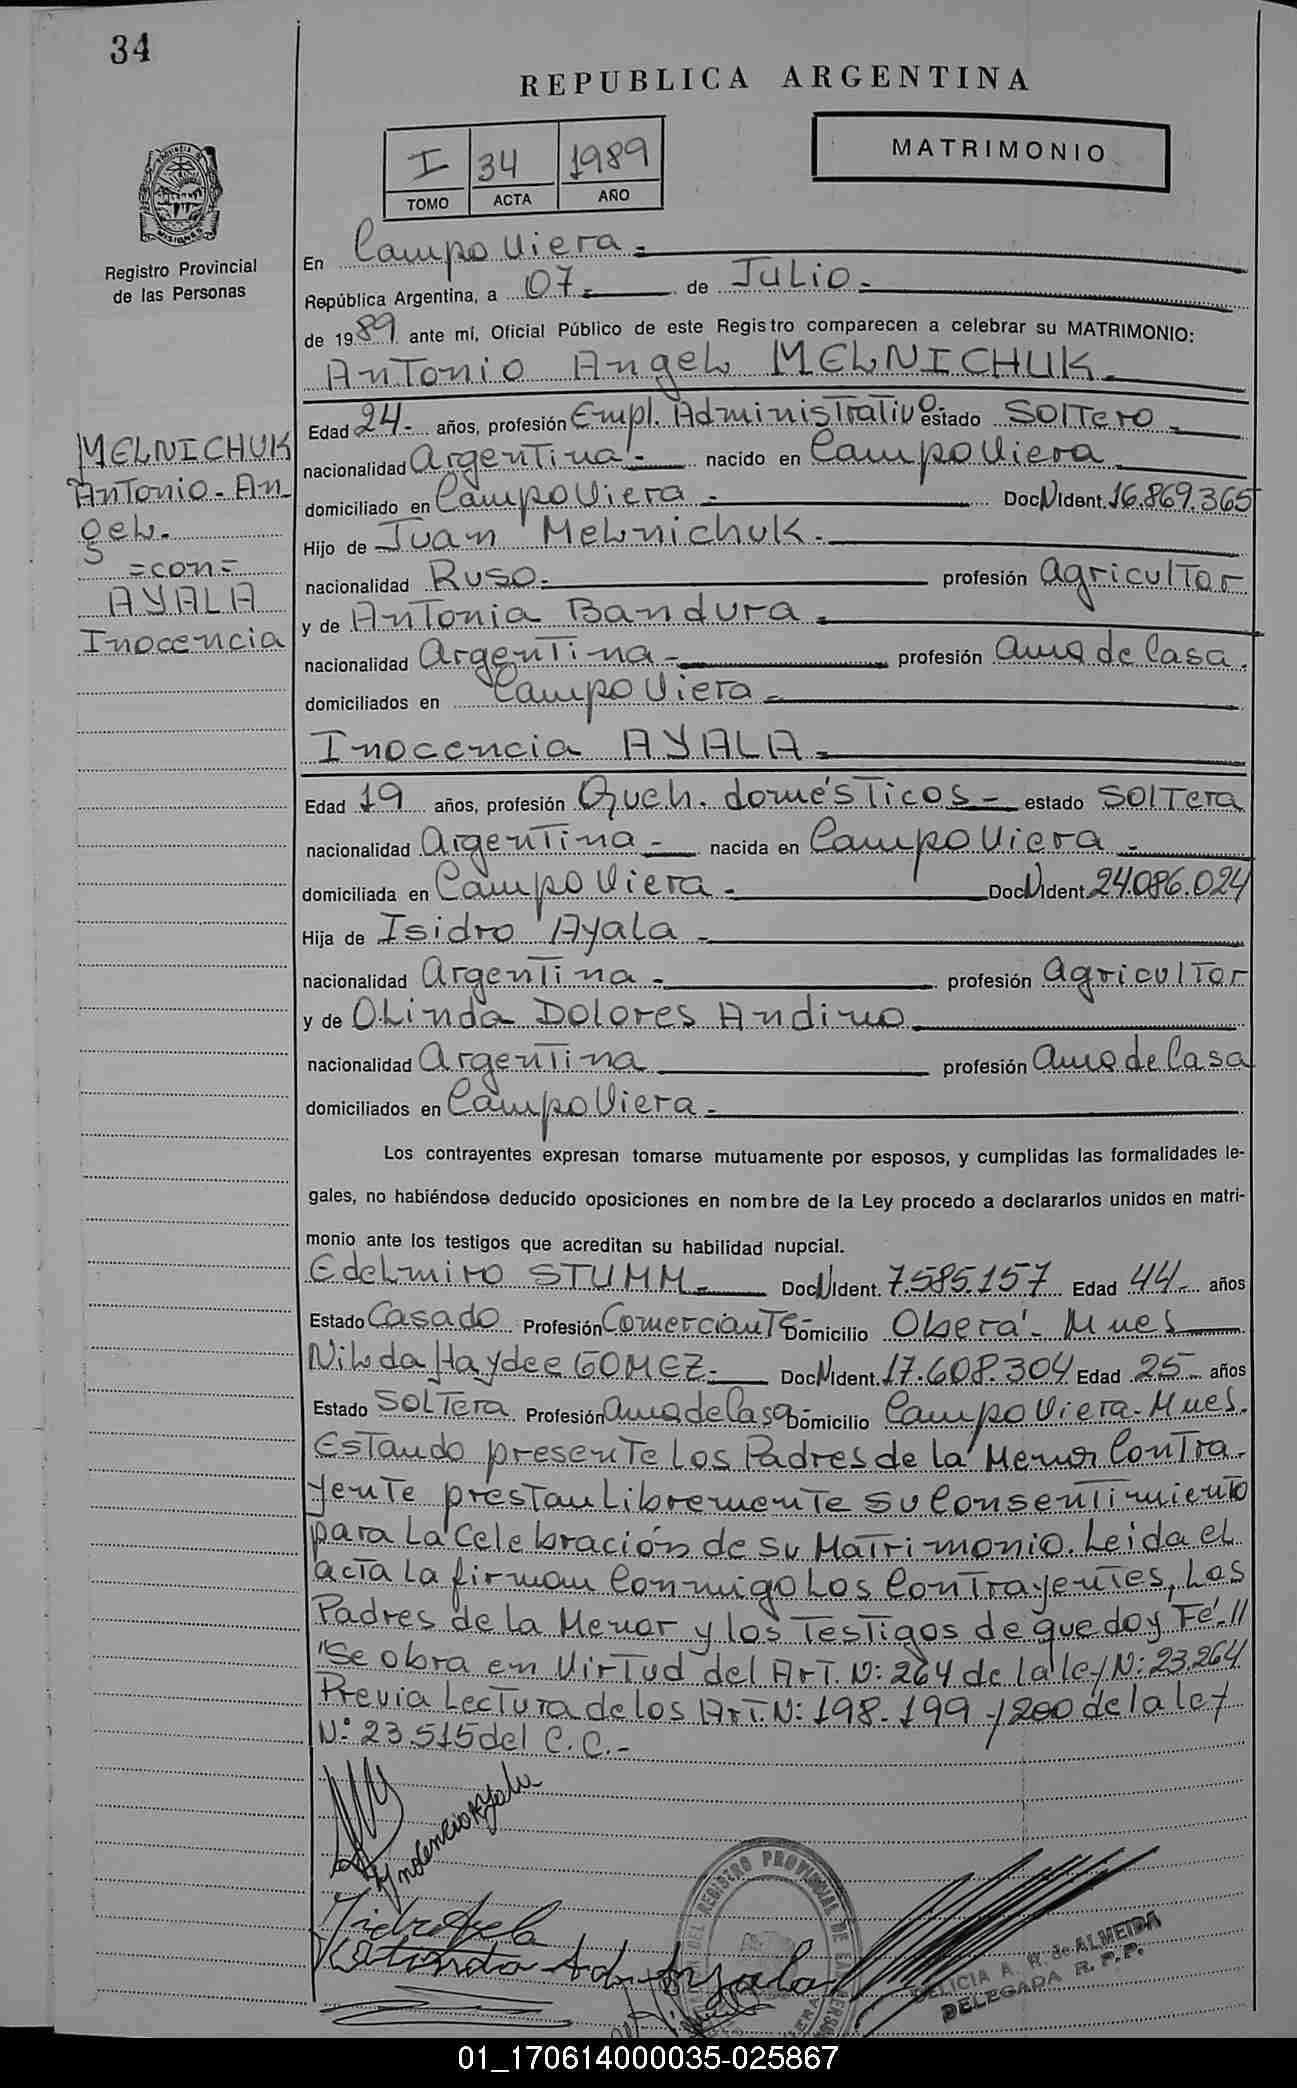 34
REPUBLICA ARGENTINA
I 34 1989
TOMO ACTA AÑO
MATRIMONIO
MISIONES
Registro Provincial
de las Personas
En Campo Viera.=
República Argentina, a 07.- de Julio.-
de 1989 ante mi, Oficial Público de este Registro comparecen a celebrar su MATRIMONIO:
Antonio Angel MELNICHUK.-
Edad 24.- años, profesión Empl. Administrativo estado Soltero.-
nacionalidad Argentina.- nacido en Campo Viera.-
domiciliado en Campo Viera.- Doc N Ident. 16.869.365
Hijo de Juan Melnichuk.-
nacionalidad Ruso.- profesión agricultor
y de Antonia Bandura.-
nacionalidad Argentina.- profesión ama de Casa.
domiciliados en Campo Viera.-
MELNICHUK
Antonio-An-
gel.
=con=
AYALA
Inocencia
Inocencia AYALA.-
Edad 19 años, profesión Queh. domésticos- estado Soltera
nacionalidad Argentina.- nacida en Campo Viera.-
domiciliada en Campo Viera.- Doc N Ident. 24.086.024
Hija de Isidro Ayala.-
nacionalidad Argentina.- profesión agricultor
y de Olinda Dolores Andino
nacionalidad Argentina profesión ama de Casa
domiciliados en Campo Viera.-
Los contrayentes expresan tomarse mutuamente por esposos, y cumplidas las formalidades le-
gales, no habiéndose deducido oposiciones en nombre de la Ley procedo a declararlos unidos en matri-
monio ante los testigos que acreditan su habilidad nupcial.
Edelmiro STUMM.- Doc N Ident. 7.585.157 Edad 44.- años
Estado Casado Profesión Comerciante- Domicilio Oberá- Mnes
Nilda Haydee GOMEZ.- Doc N Ident. 17.608.304 Edad 25- años
Estado Soltera Profesión ama de Casa- Domicilio Campo Viera-Mnes.
Estando presente los Padres de la Menor Contra-
yente prestan Libremente su Consentimiento
para la Celebración de su Matrimonio. Leida el
acta la firman Conmigo los Contrayentes, los
Padres de la Menor y los Testigos de que doy Fé.-//
"Se obra en Virtud del Art. N: 264 de la ley N: 23.264
Previa Lectura de los Art. N: 198-199-/200 de la ley
N: 23.515 del C.C.-
Ynocencia Ayala
DEL REGISTRO PROVINCIAL DE
DELICIA A. W. de ALMEIDA
DELEGADA R. P. P.
01_170614000035-025867